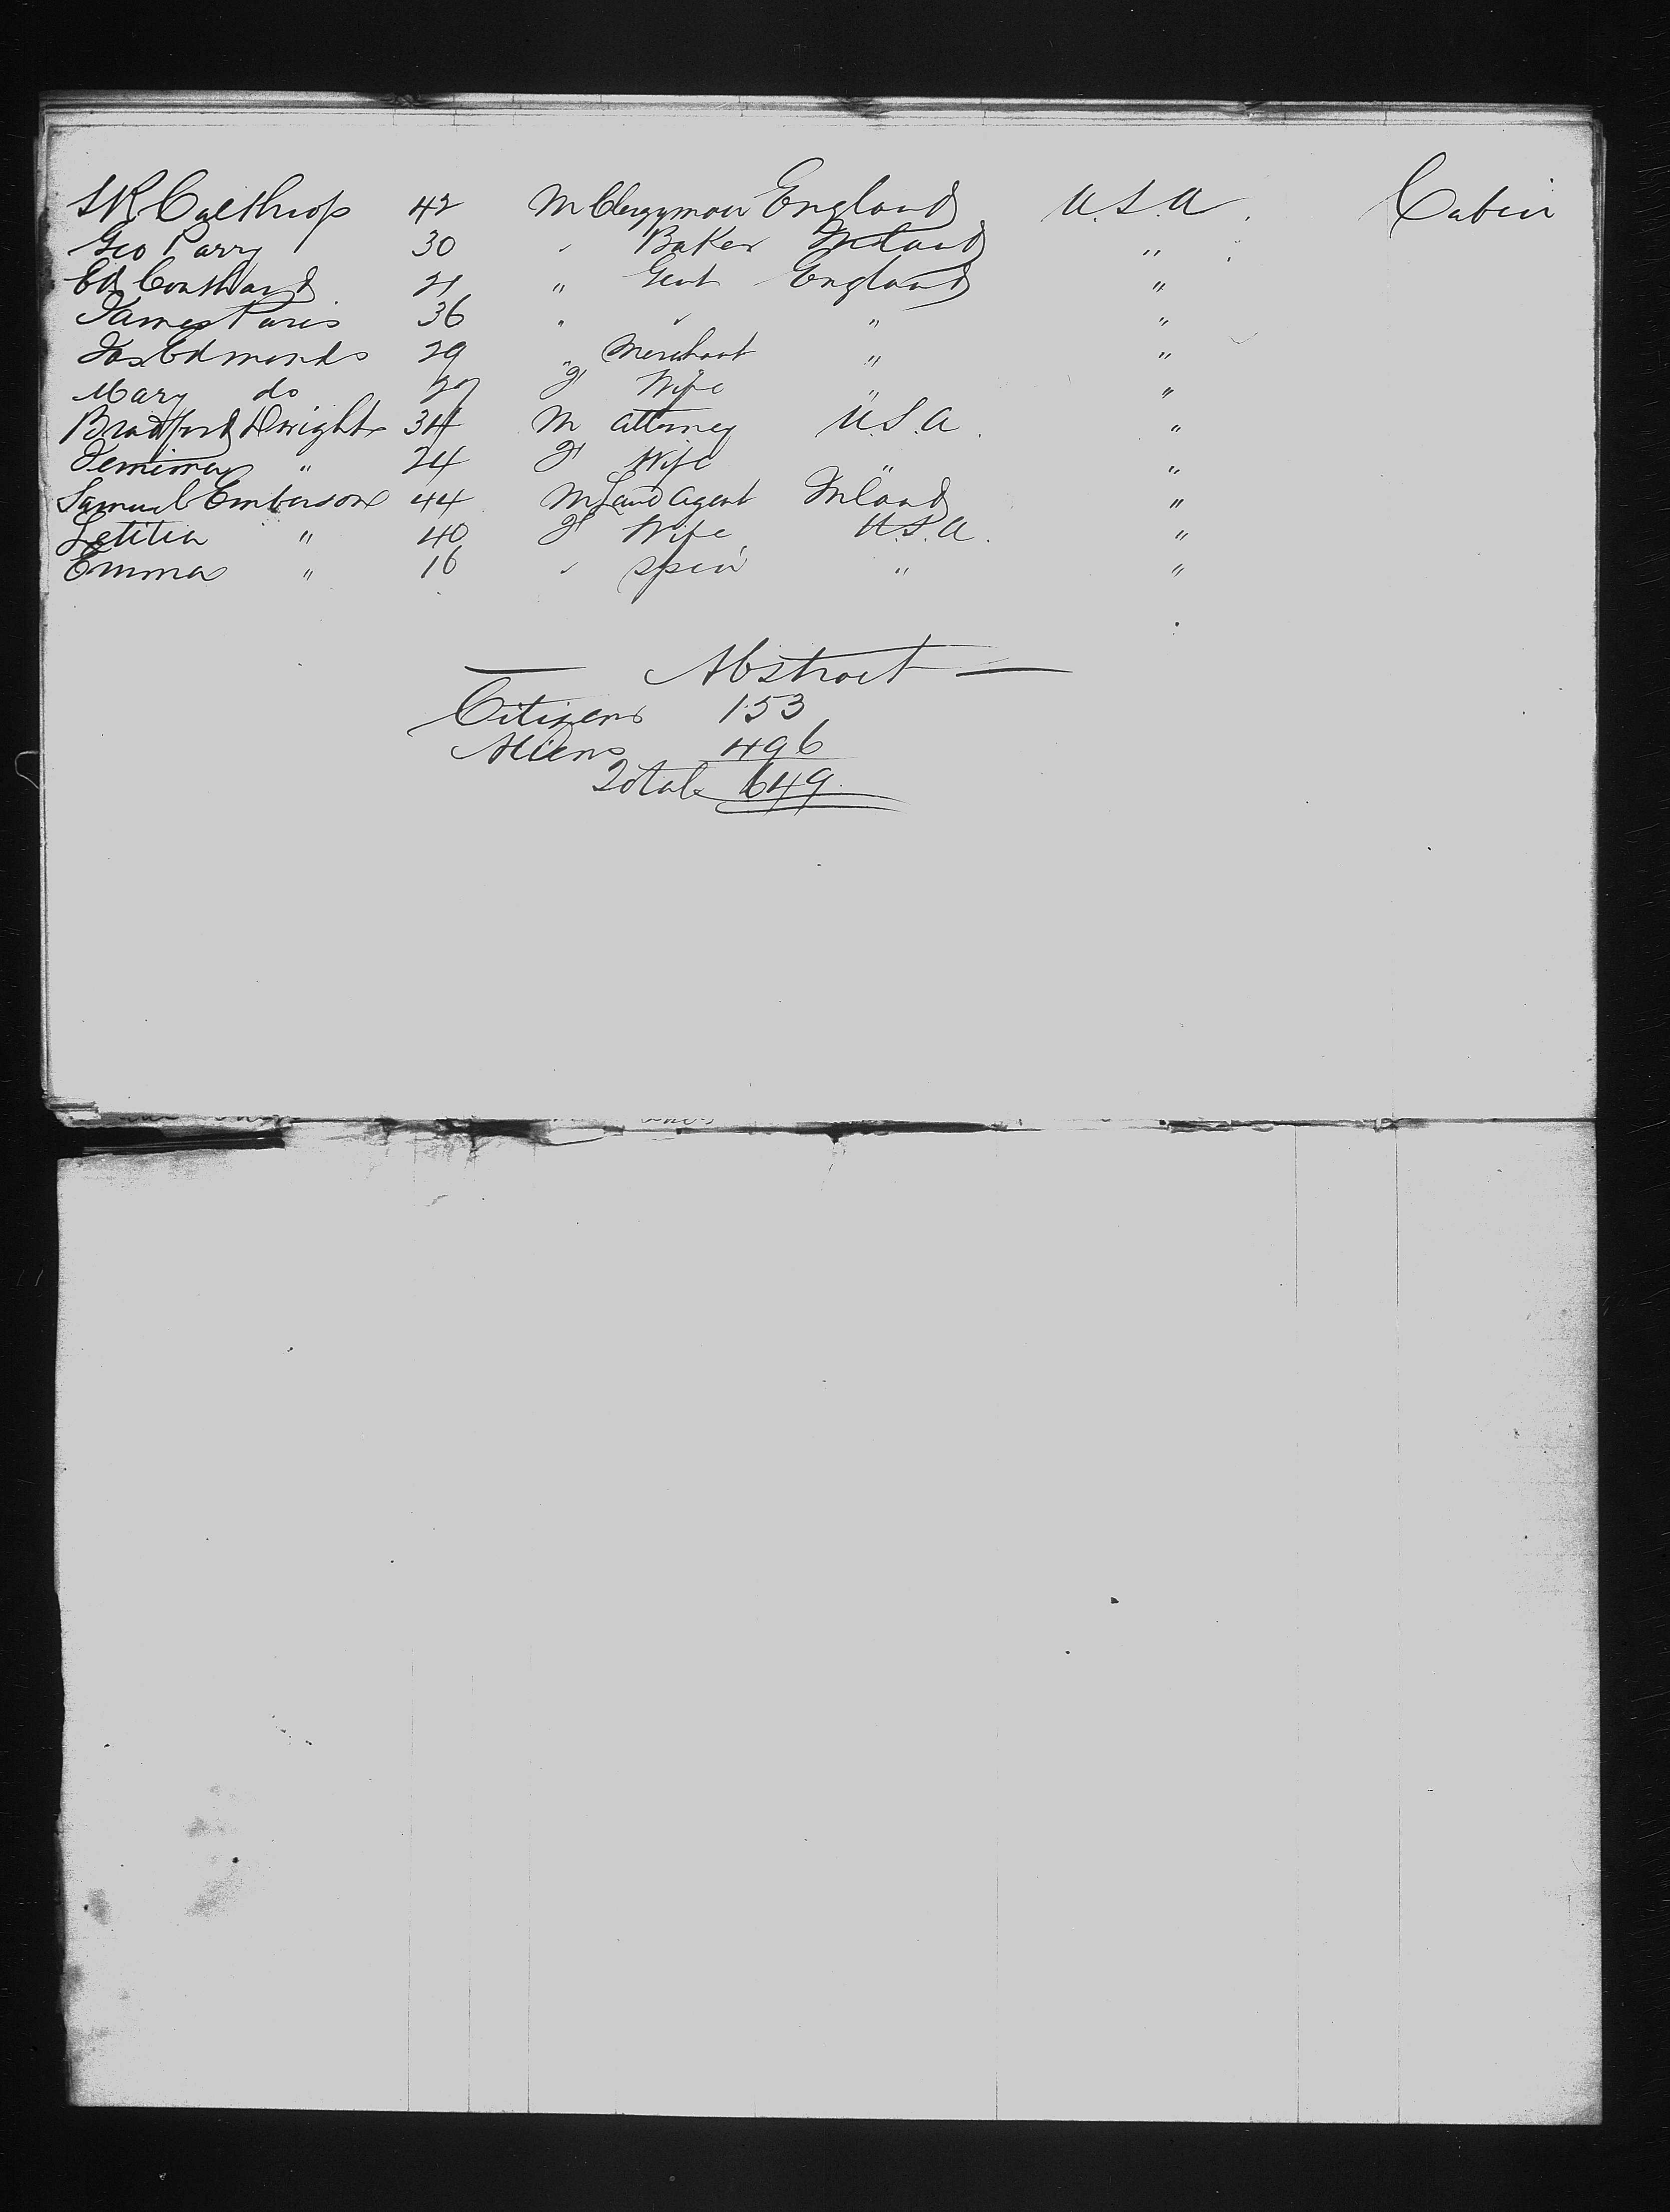 S R Calthrop 42 M Clergyman England U.S.A. Cabin
Geo Parry 30 " Baker Ireland "
Ed Coulthard 21 " Gent England "
James Paris 36 " " " "
Jas Edmonds 29 " Merchant " "
Mary do 27 F Wife " "
Bradford Dwight 34 M Attorney U.S.A. "
Jemima " 24 F Wife " "
Samuel Emberson 44 M Land Agent Ireland "
Letitia " 40 F Wife U.S.A. "
Emma " 16 " Spin " "
Abstract
Citizens 153
Aliens 496
Total 649